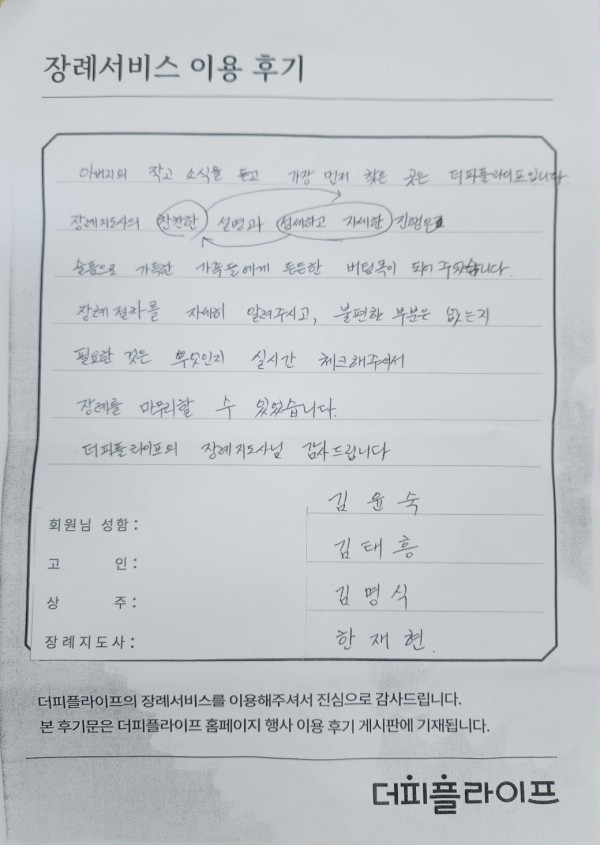 장례서비스 이용 후기
아버지의 작고 소식을 듣고 가장 먼저 찾은 곳은 더피플라이프입니다.
장례지도사의 친절한 설명과 섬세하고 자세한 진행은
슬픔으로 가득한 가족들에게 든든한 버팀목이 되어 주었습니다.
장례절차를 자세히 알려주시고, 불편한 부분은 없는지
필요한 것은 무엇인지 실시간 체크해주셔서
장례를 마무리할 수 있었습니다.
더피플라이프의 장례지도사님 감사드립니다
회원님 성함: 김윤숙
고 인: 김태흥
상 주: 김명식
장례지도사: 한재현.
더피플라이프의 장례서비스를 이용해주셔서 진심으로 감사드립니다.
본 후기문은 더피플라이프 홈페이지 행사 이용 후기 게시판에 기재됩니다.
더피플라이프